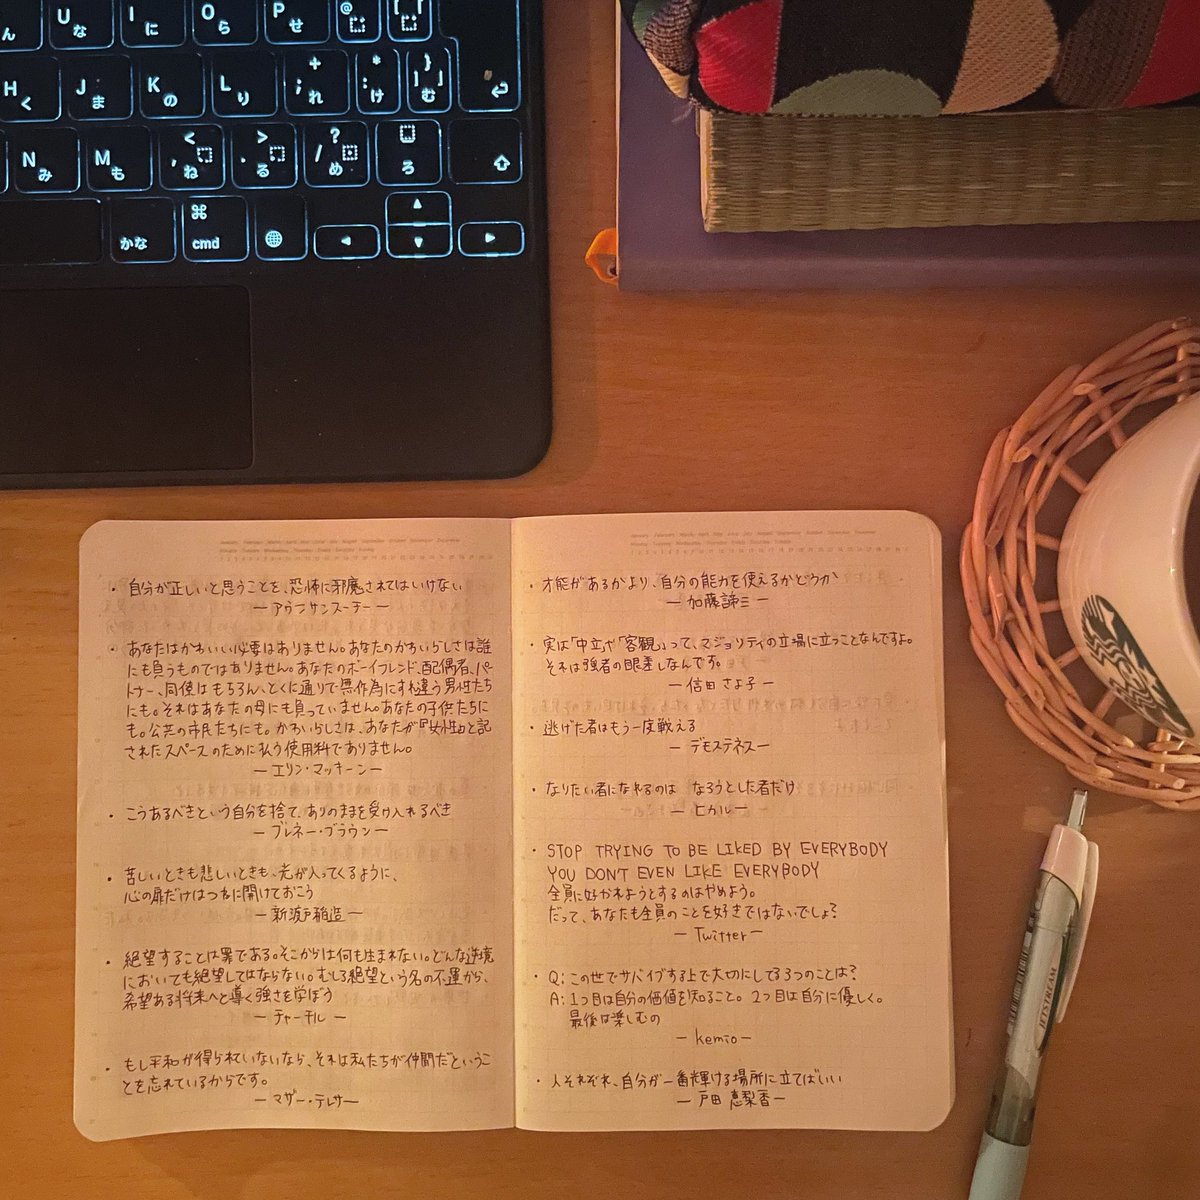 U な
I に
O ら
P せ
@
ん
H く
J ま
K の
L り
+ ; れ
* : け
} ] む
N み
M も
< , ね
> . る
? / め
ろ
かな
⌘
cmd
・自分が正しいと思うことを、恐怖に邪魔されてはいけない
ーアウンサンスーチーー
・あなたはかわいい必要はありません。あなたのかわいらしさは誰
にも負うものではありません。あなたのボーイフレンド、配偶者、パー
トナー、同僚はもちろん、とくに通りで無作為にすれ違う男性たち
にも。それはあなたの母にも負っていません。あなたの子供たちに
も。公共の市民たちにも。かわいらしさは、あなたが『女性』と記
されたスペースのために払う使用料でありません。
ーエリン・マッキーンー
・こうあるべきという自分を捨て、ありのままを受け入れるべき
ーブレネー・ブラウンー
・苦しいときも悲しいときも、光が入ってくるように、
心の扉だけはつねに開けておこう
ー新渡戸稲造ー
・絶望することは罪である。そこからは何も生まれない。どんな逆境
においても絶望してはならない。むしろ絶望という名の不運から、
希望ある将来へと導く強さを学ぼう
ーチャーチルー
・もし平和が得られていないなら、それは私たちが仲間だというこ
とを忘れているからです。
ーマザー・テレサー
・才能があるかより、自分の能力を使えるかどうか
ー加藤諦三ー
・実は「中立」や「客観」って、マジョリティの立場に立つことなんですよ。
それは強者の眼差しなんです。
ー信田さよ子ー
・逃げた者はもう一度戦える
ーデモステネスー
・なりたい者になれるのは なろうとした者だけ
ーヒカルー
・STOP TRYING TO BE LIKED BY EVERYBODY
YOU DON'T EVEN LIKE EVERYBODY
全員に好かれようとするのはやめよう。
だって、あなたも全員のことを好きではないでしょ?
ーTwitterー
・Q:この世でサバイブする上で大切にしてる3つのことは?
A:1つ目は自分の価値を知ること。2つ目は自分に優しく。
最後は楽しむの
ーkemioー
・人それぞれ、自分が一番輝ける場所に立てばいい
ー戸田 恵梨香ー
JETSTREAM